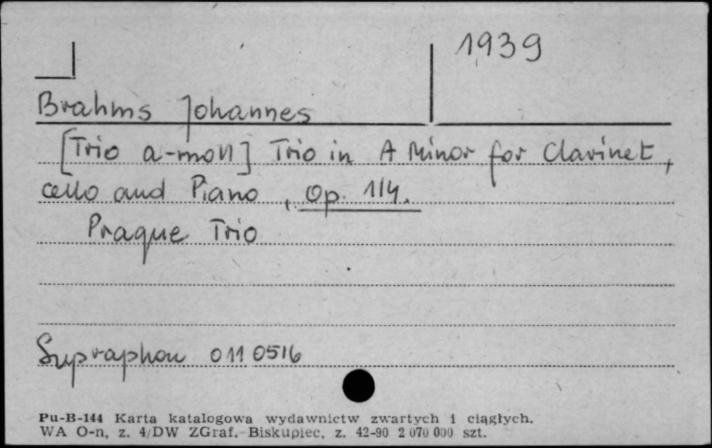 1939
Brahms Johannes
[Trio a-moll] Trio in A Minor for Clarinet,
cello and Piano, Op. 114.
Prague Trio
Supraphon 011 0516
Pu-B-144 Karta katalogowa wydawnictw zwartych i ciągłych.
WA O-n, z. 4/DW ZGraf. Biskupiec, z. 42-90 2 070 000 szt.